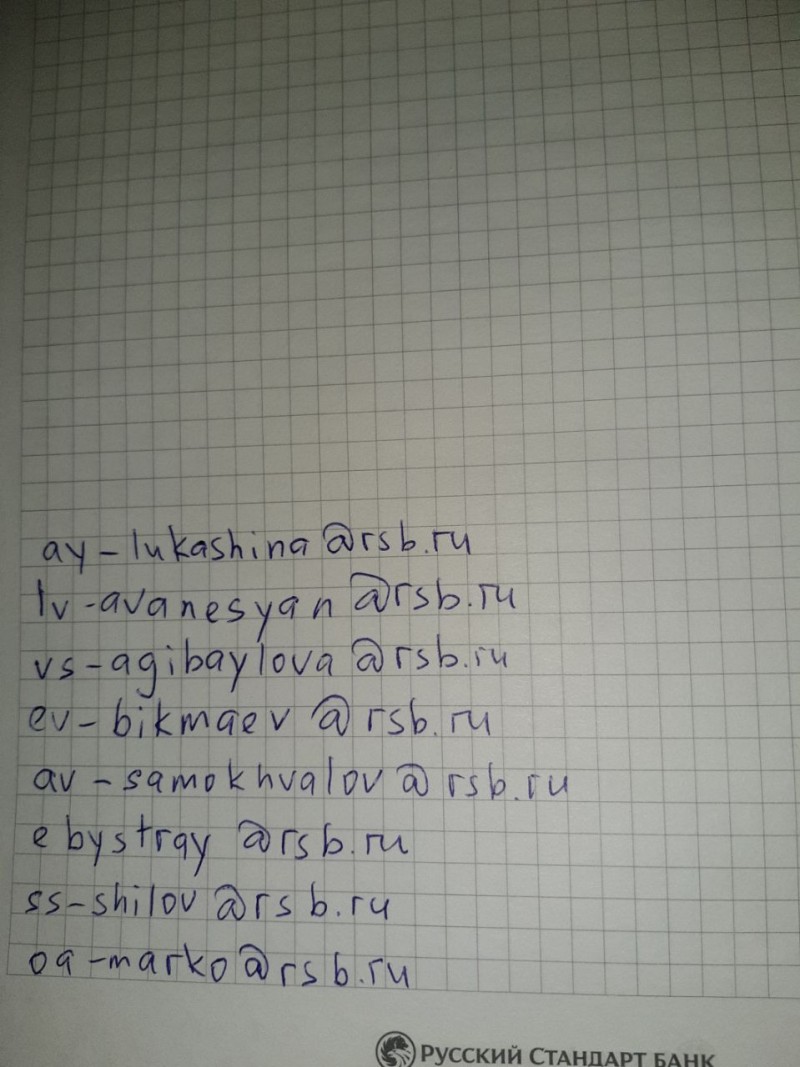 ay-lukashina@rsb.ru
lv-avanesyan@rsb.ru
vs-agibaylova@rsb.ru
ev-bikmaev@rsb.ru
av-samokhvalov@rsb.ru
ebystray@rsb.ru
ss-shilov@rsb.ru
oa-marko@rsb.ru
РУССКИЙ СТАНДАРТ БАНК